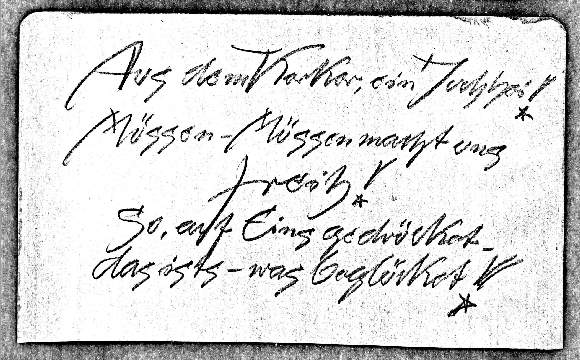 Aus dem Kerker, ein Juchhei!
Müssen-Müssen macht uns
frei!
So, auf Eins gedrücket-
das ists-was beglücket!